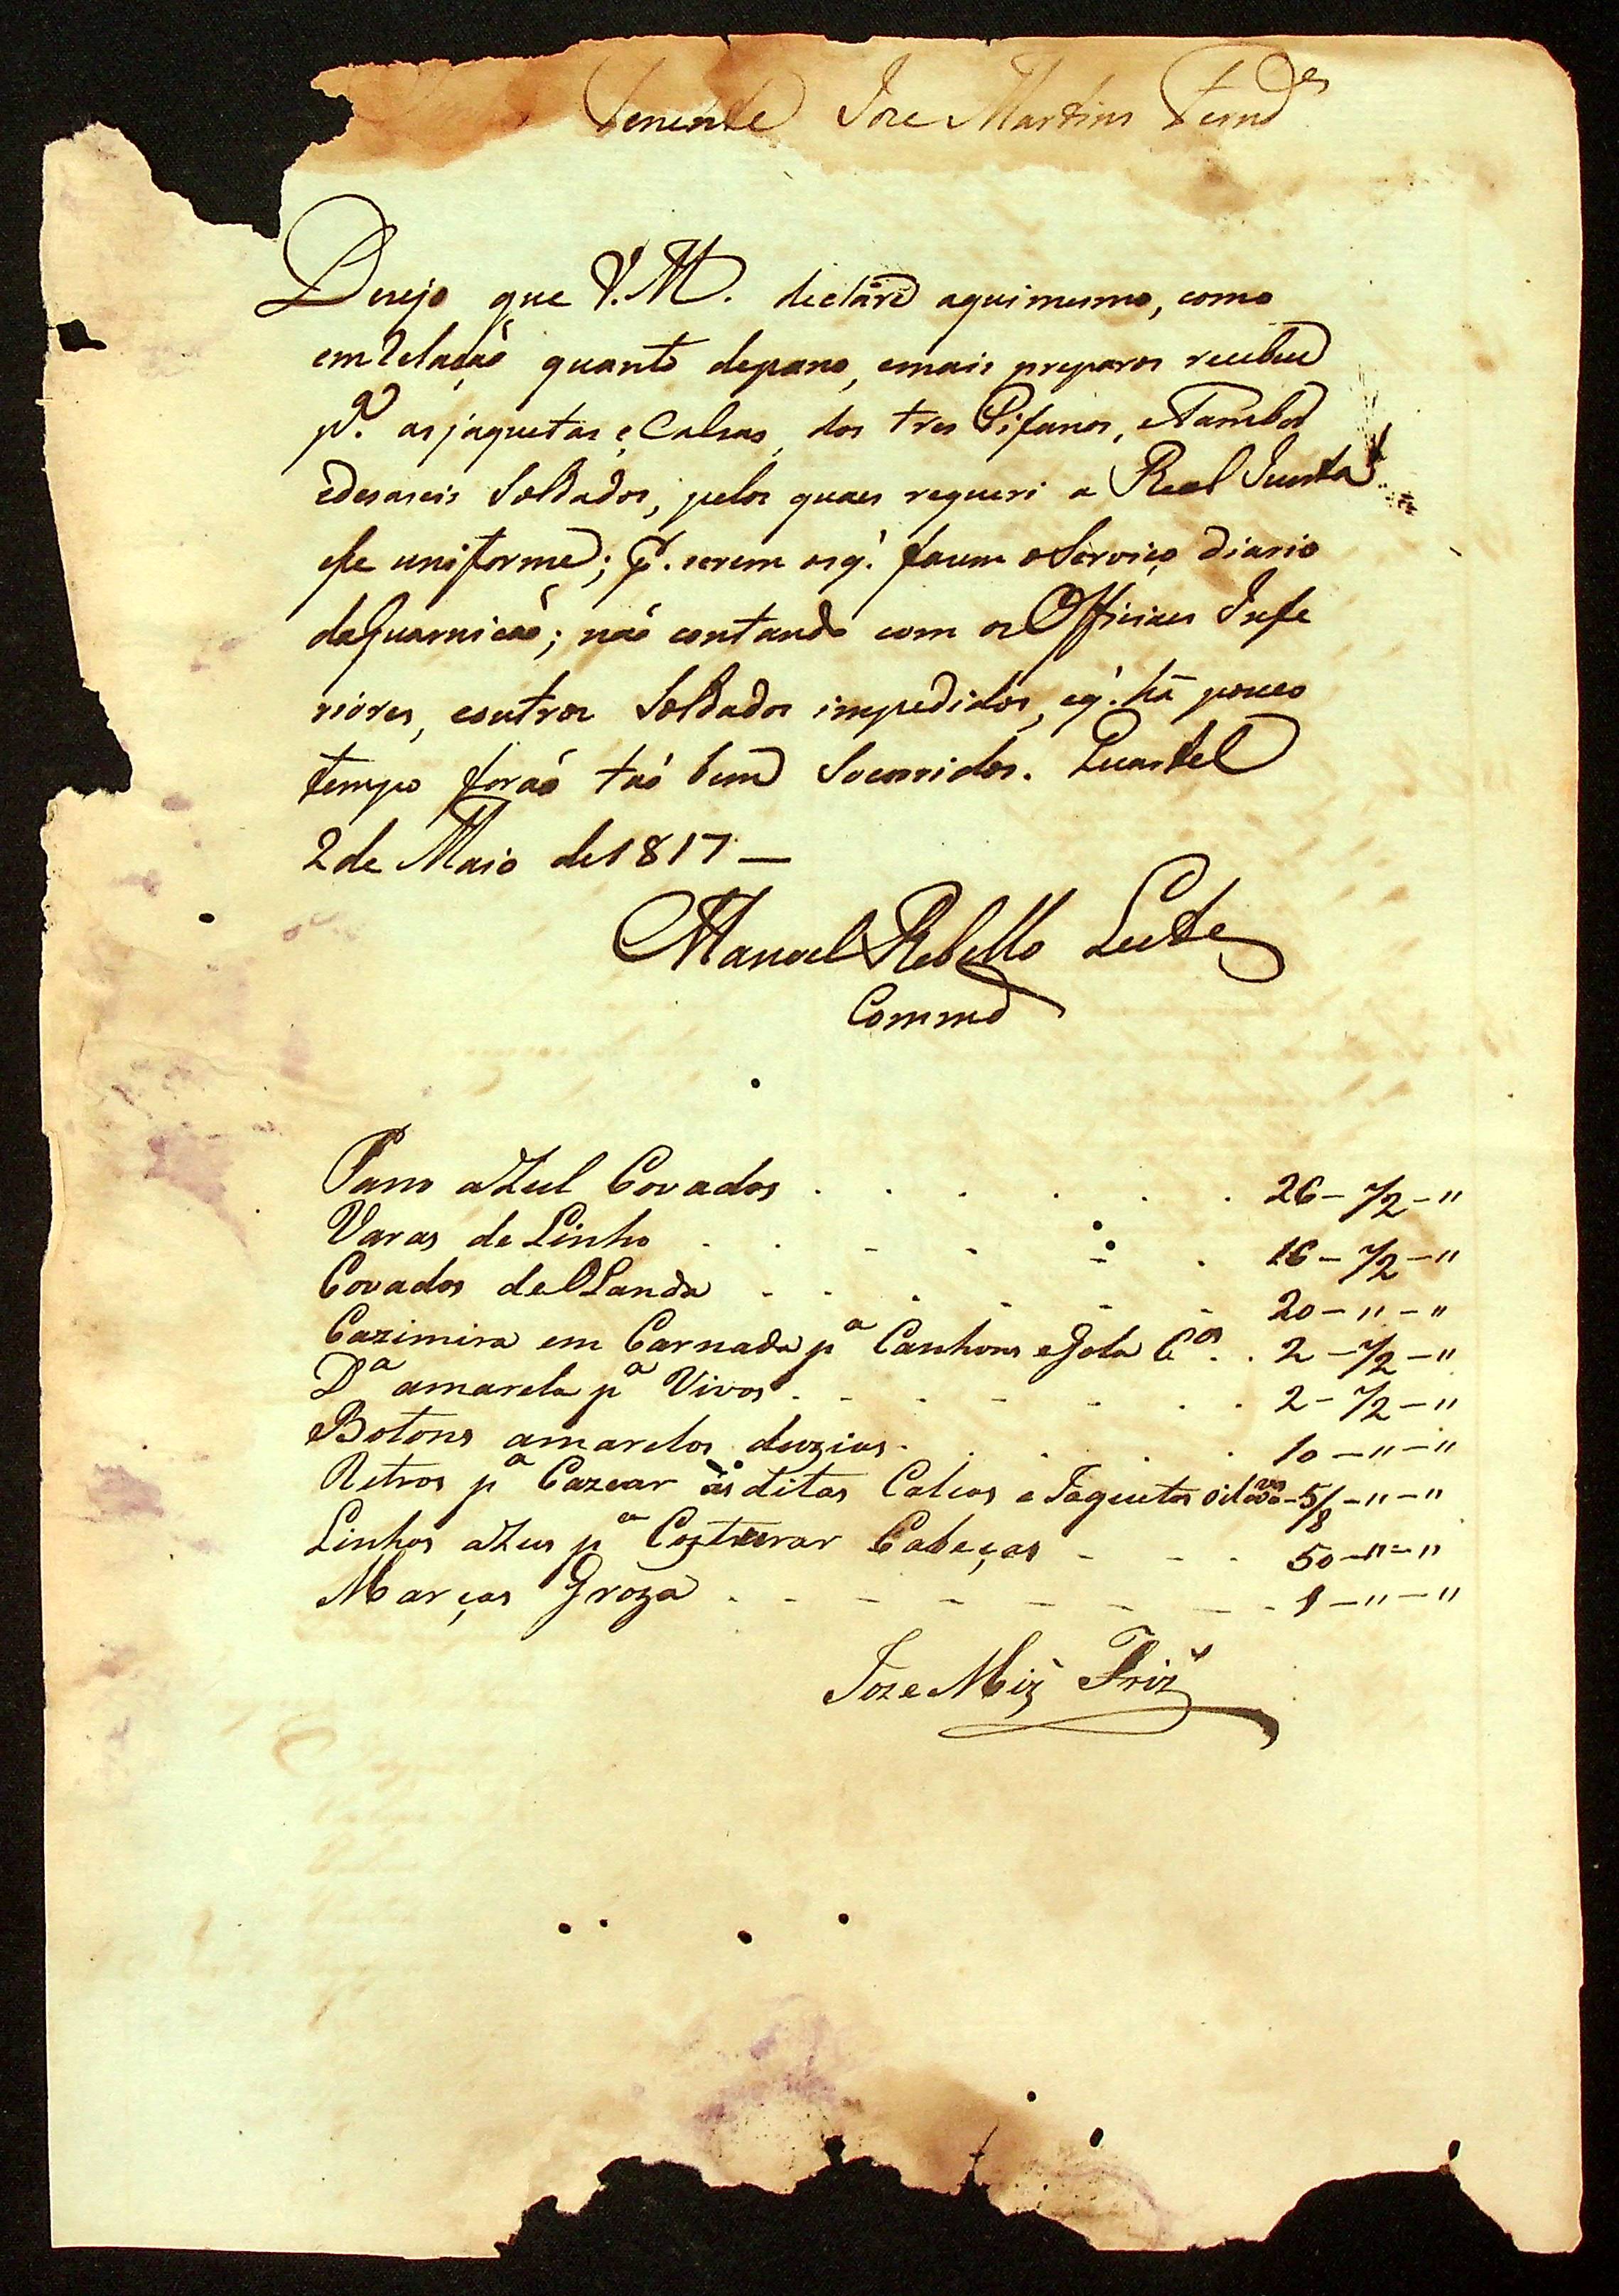 Tenente Joze Martins Fernd.es
Dezejo que V. M. declare aqui mesmo, como
em Relação quanto depano, emais preparos recebeu
p.a as jaquetas, e Calsas, dos tres Pifanos, e Tambor
edesaseis Soldados, pelos quaes requeri a Real Junta
este uniforme; p.r serem os q.' fazem o Serviço diario
daGuarnicaõ; naõ contando com os Officiaes Infe
riores, eoutros Soldados impedidos, eq.' há pouco
tempo foraõ taõ bem Socorridos. Quartel
2 de Maio de 1817 —
Manoel Rebello Leite
Commd
Pano aZul Covados . . . . . . 26 - 1/2 - "
Varas de Linho . . - - - . 16 - 1/2 - "
Covados de OLanda . . . - - - 20 - " - "
Cazimira em Carnada p.a Canhons eGola C.os . . 2 - 1/2 - "
D.a amarela p.a Vivos . . . - - . . 2 - 1/2 - "
Botons amarelos duzias . . . . 10 - " - "
Retros p.a Cazear às ditas Calcas e Jaquetas oitavas - 5/8 - " - "
Linhas aZus p.a Costurar Cabeças - - . 50 - " - "
Marças Groza . . - - - - - . 1 - " - "
Joze Miz Friz